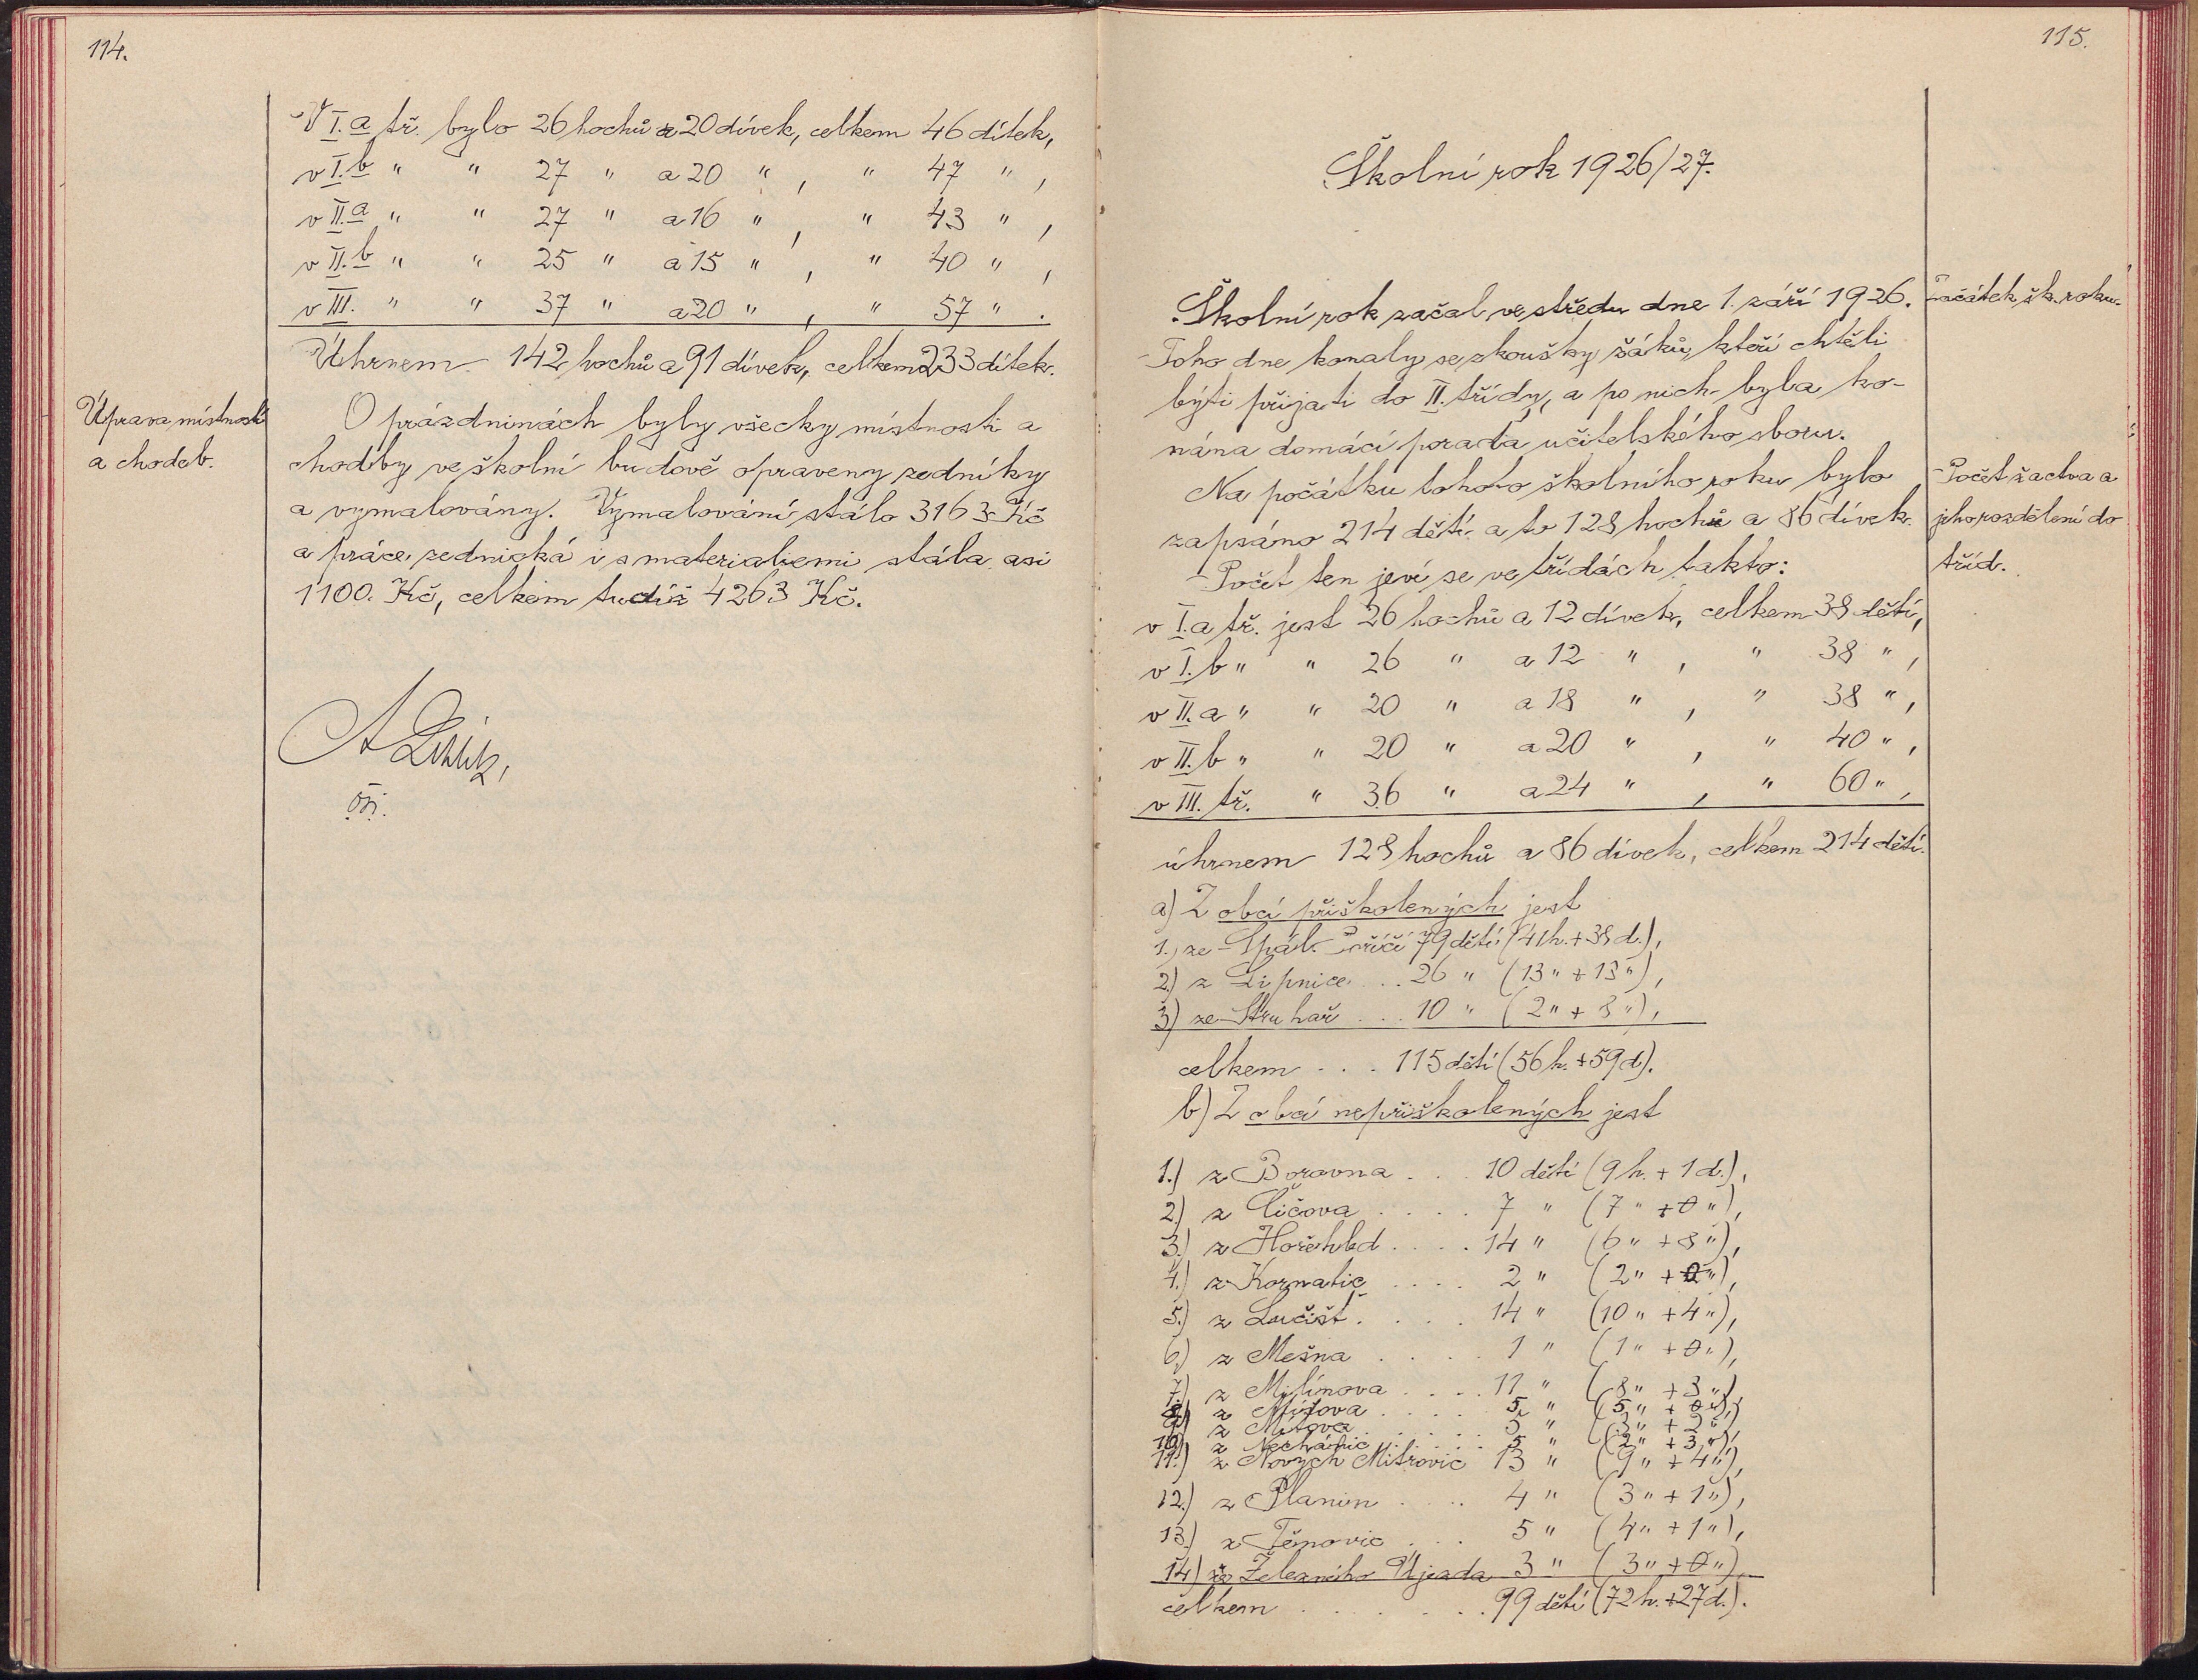 114.
V I. a tř. bylo 26 hochů a 20 dívek, celkem 46 dítek,
v I. b " " 27 " a 20 " , " 47 " ,
v II. a " " 27 " a 16 " , " 43 " ,
v II. b " " 25 " a 15 " , " 40 " ,
v III. " " 37 " a 20 " , " 57 " .
Úhrnem 142 hochů a 91 dívek, celkem 233 dítek.
Úprava místností
a chodeb.
O prázdninách byly všecky místnosti a
chodby ve školní budově opraveny zedníky
a vymalovány. Vymalování stálo 3163 Kč
a práce zednická i s materialiemi stála asi
1100 Kč, celkem tudíž 4263 Kč.
115.
Školní rok 1926/27.
Školní rok začal ve středu dne 1. září 1926.
Začátek šk. roku.
Toho dne konaly se zkoušky žáků, kteří chtěli
býti přijati do II. třídy, a po nich byla ko-
nána domácí porada učitelského sboru.
Na počátku tohoto školního roku bylo
zapsáno 214 dětí a to 128 hochů a 86 dívek.
Počet žactva a
jeho rozdělení do
tříd.
Počet ten jeví se ve třídách takto:
v I. a tř. jest 26 hochů a 12 dívek, celkem 38 dětí,
v I. b " " 26 " a 12 " , " 38 " ,
v II. a " " 20 " a 18 " , " 38 " ,
v II. b " " 20 " a 20 " , " 40 " ,
v III. tř. " 36 " a 24 " , " 60 " ,
úhrnem 128 hochů a 86 dívek, celkem 214 dětí.
a) Z obcí přiškolených jest
1.) ze Spál. Poříčí 79 dětí (41 h. + 38 d.),
2.) z Lipnice ... 26 " (13 " + 13 "),
3) ze Struhař ... 10 " (2 " + 8 "),
celkem ... 115 dětí (56 h. + 59 d).
b) Z obcí nepřiškolených jest
1.) z Borovna ... 10 dětí (9 h. + 1 d.),
2.) z Číčova .... 7 " (7 " + 0 "),
3.) z Hořehled .... 14 " (6 " + 8 "),
4.) z Kornatic .... 2 " (2 " + 0 "),
5.) z Lučišť .... 14 " (10 " + 4 "),
6.) z Mešna .... 1 " (1 " + 0 "),
7.) z Milínova .... 11 " (8 " + 3 "),
8.) z ..... 5 " (5 " + 0 "),
9.) z Mítova ..... 5 " (3 " + 2 "),
10.) z Nechánic ..... 5 " (2 " + 3 "),
11.) z Nových Mitrovic 13 " (9 " + 4 "),
12.) z Planin .... 4 " (3 " + 1 "),
13.) z Těnovic ... 5 " (4 " + 1 "),
14.) ze Železného Újezda 3 " (3 " + 0 "),
celkem ....... 99 dětí (72 h. + 27 d.).